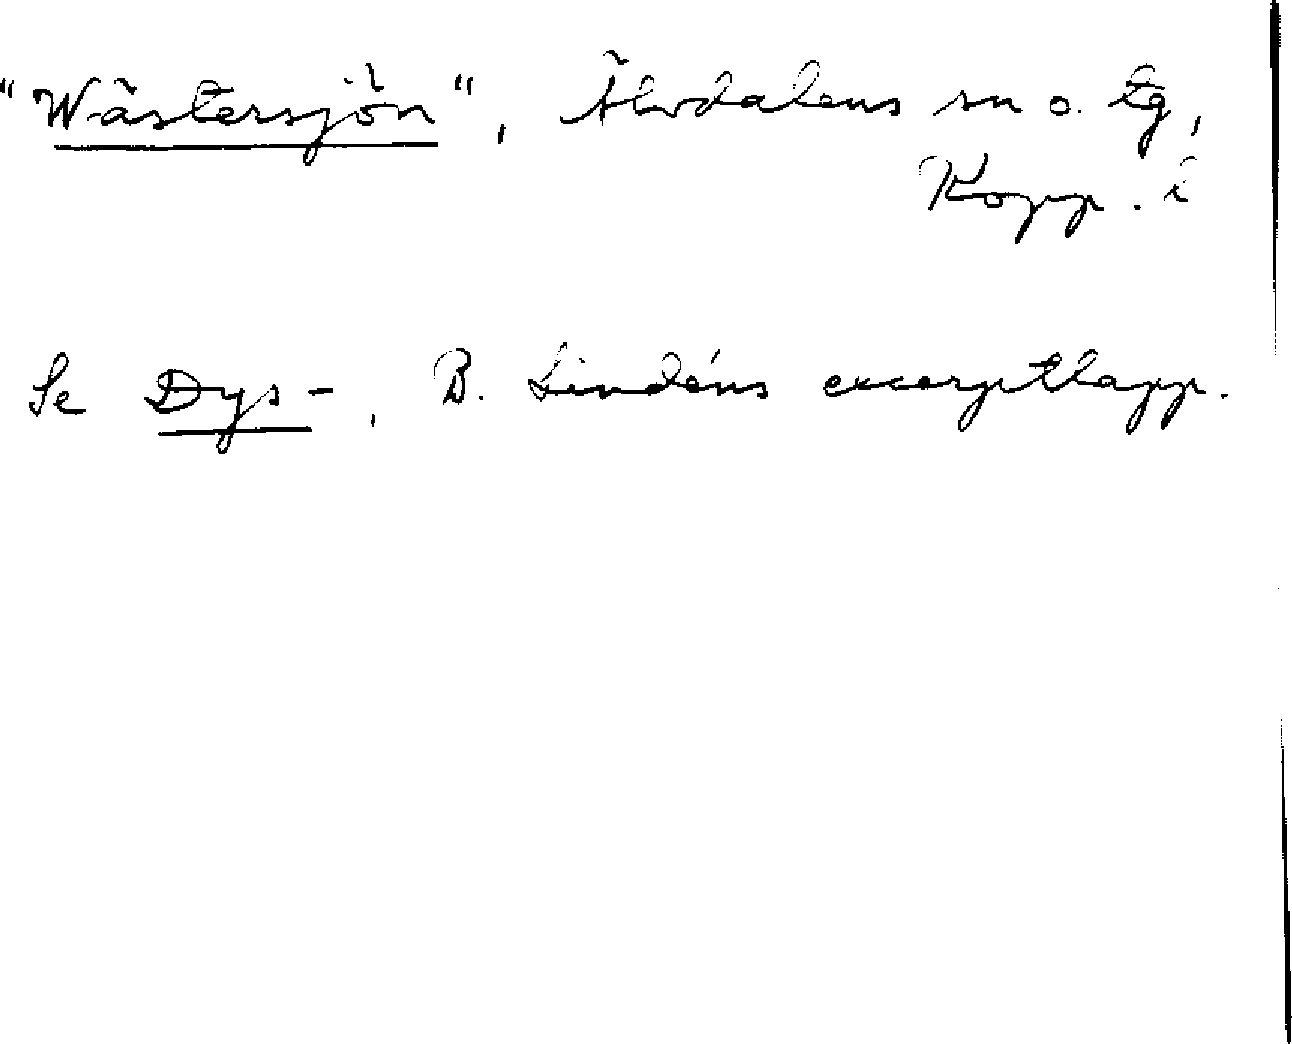 "Wästersjön", Älvdalens sn o. tg,
Kopp. l
Se Dys-, B. Lindéns excerptlapp.